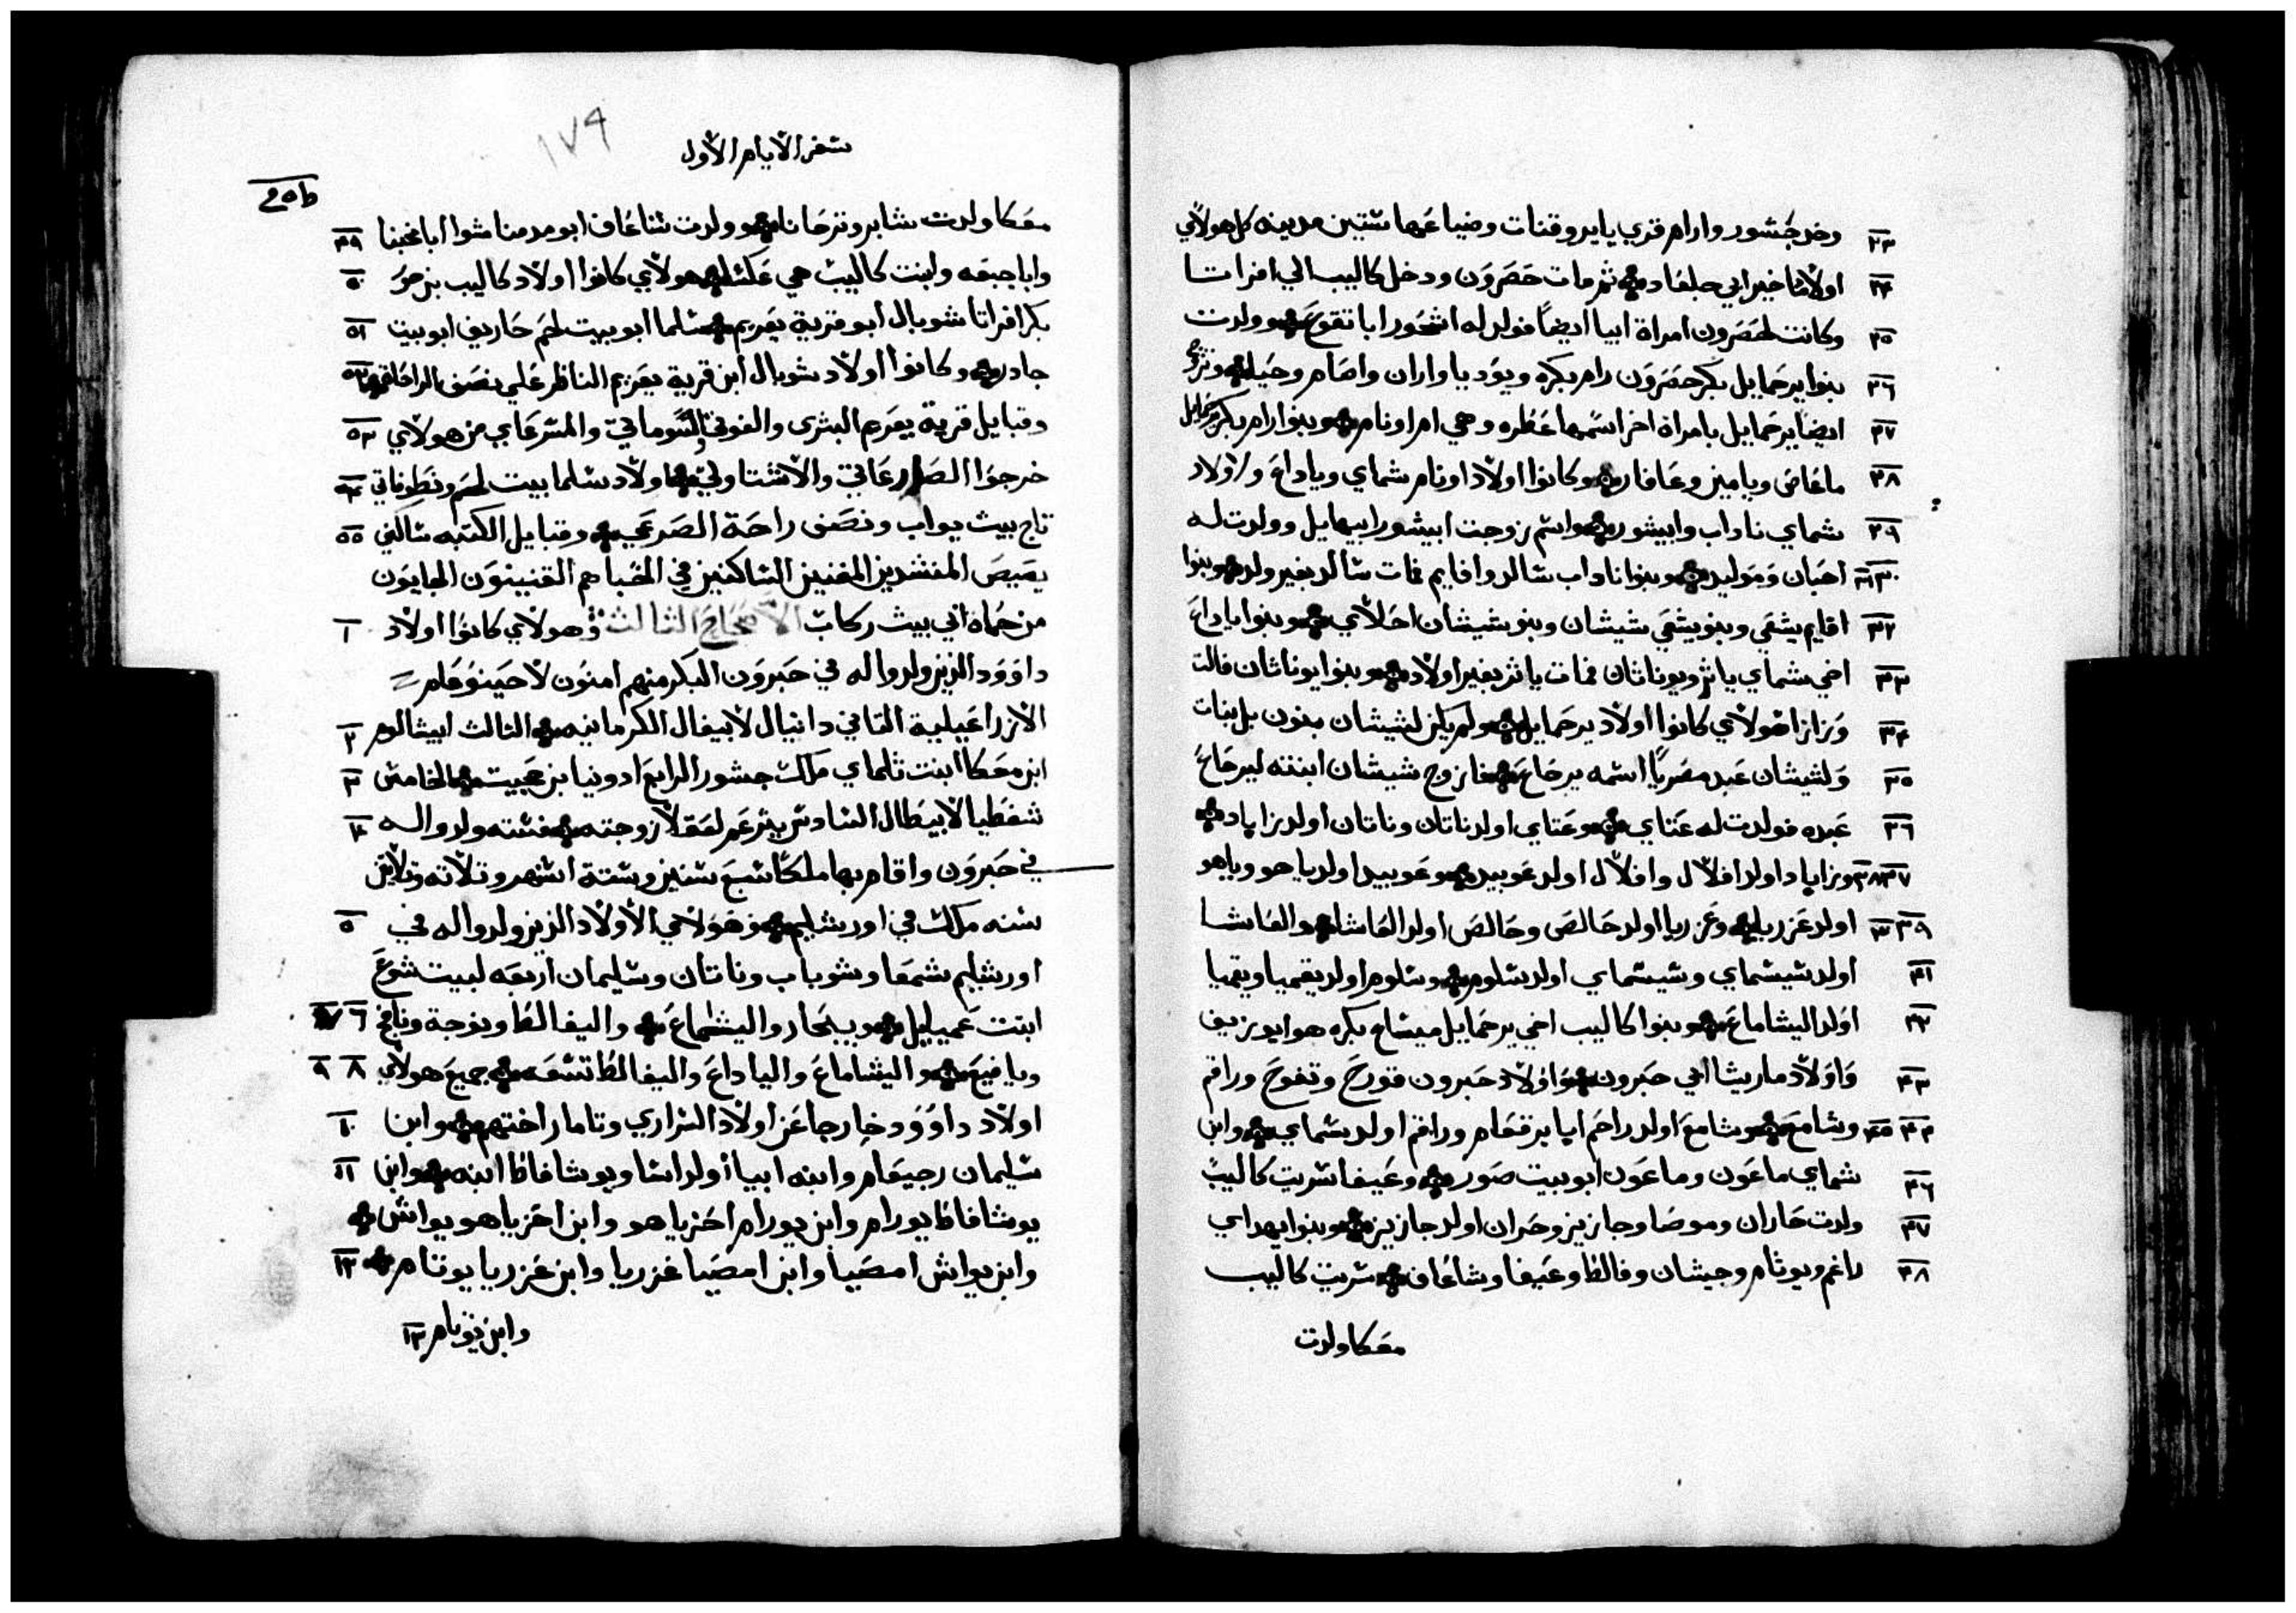 ٢٣ وخد جشور وارام قري يايرو قنات وضياعها ستين مدينه كل هولاي
٢٤ اولاد ماخير ابي جلعاد ثم مات حصرون ودخل كاليب الي افراتا
٢٥ وكانت لحصرون امراة ابيا ايضا فولد له اشحور ابا تقوع وولدت
٢٦ بنوا يرحمايل بكر حصرون رام بكره ويود يا واران واصام وحيا وتزوج
٢٧ ايضا يرحمايل بامراة اخر اسمها عطره وهي ام اونام وبنوا رام بكر يرحمايل
٢٨ ماعاص ويامين وعافار وكانوا اولاد اونام شماي وياداع واولاد
٢٩ شماي ناداب وابيشور واسم زوجت ابيشور ابيهايل وولدت له
٣٠ ٣١ احبان ومَوليد وبنوا ناداب سالد وافايم فمات سالد بغير ولد وبنوا
٣٢ افايم يشعي وبنو يشعي شيشان وبنو شيشان احلاي وبنوا ياداع
٣٣ اخي شماي ياثر ويوناثان فمات ياثر بغير اولاد وبنوا يوناثان فالت
٣٤ وزازا هولاي كانوا اولاد يرحمايل ولم يكن لشيشان بنون بل بنات
٣٥ ولشيشان عبد مصريا اسمه يرحاع فازوج شيشان ابنته ليرحاع
٣٦ عبده فولدت له عتاي وعتاي اولد ناتان وناتان اولد زاباد
٣٧ ٣٨ وزاباد اولد افلال وافلال اولد عوبيد وعوبيد اولد ياهو وياهو
٣٩ اولد عزريا وعزريا اولد حالص وحالص اولد العاشا والعاشا
٤١ اولد شيسماي وشيسماي اولد سلوم وسلوم اولد يقميا ويقميا
٤٢ اولد اليشاماع وبنوا كاليب اخي يرحمايل ميشاع بكره هو ابو زيف
٤٣ واولاد ماريشا ابي حبرون واولاد حبرون قورح وتفوح وراقم
٤٤ ٤٥ وشامع وشامع اولد راحم ابا يرقعام وراقم اولد شماي وابن
٤٦ شماي ماعون وماعون ابو بيت صور وعيفا سريت كاليب
٤٧ ولدت حاران وموصا وجازيز وحران اولد جازيز وبنوا يهداي
٤٨ راغم ويوثام وجيشان وفالط وعيفا وشاعاف سريت كاليب
معكا ولدت
سفر الايام الاول
١٧٩
معكا ولدت شابر وترحانا وولدت شاعاف ابو مدمنا شوا ابا مخبنا ٤٩
وابا جبعه وابنت كاليب هي عكسا هولاي كانوا اولاد كاليب بن حور ٥٠
بكر افراتا شوبال ابو قرية يعريم سلما ابو بيت لحم حاريف ابو بيت ٥١
جادر وكانوا اولاد شوبال ابن قرية يعريم الناظر علي نصف الراحة ٥٢
وقبايل قرية يعريم البثرى والفوتي والشوماتي والمشرعاي من هولاي ٥٣
خرجوا الصارعاتي والاشتاولي اولاد سلما بيت لحم ونطوفاتي ٥٤
تاج بيت يواب ونصف راحة الصرعي وقبايل الكتبه ساكني ٥٥
يعبيص المنشدين المغنين الساكنين في الخبا هم القنينون الجايون
من حماه ابي بيث ركاب الاصحاح الثالث وهولاي كانوا اولاد ١
داوود الذين ولدوا له في حبرون البكر منهم امنون لاحينوعام
الازراعيلية الثاني دانيال لابيغال الكرمانيه الثالث ابيشالوم ٢
ابن معكا ابنت تلماي ملك جشور الرابع ادونيا بن حجيت الخامس ٣
شفطيا لابيطال السادس يثرعم لعقلا زوجته فستة ولدوا له ٤
في حبرون واقام بها ملكا سبع سنين وستة اشهر وثلاثه وثلاثين
سنه ملك في اورشليم وهولاي الاولاد الذين ولدوا له في ٥
اورشليم شمعا وشوباب وناتان وسليمان اربعه لبيت شوع
ابنت عميايل ويبحار واليشماع واليفالط ونوجة ونافج ٦ ٧
ويافيع واليشاماع والياداع واليفالط تسعه جميع هولاي ٨ ٩
اولاد داوود خارجا عن اولاد السراري وتامار اختهم وابن ١٠
سليمان رجيعام وابنه ابيا اولد اسا ويوشافاط ابنه وابن ١١
يوشافاط يورام وابن يورام احزياهو وابن احزياهو يواش
وابن يواش امصيا وابن امصيا عزريا وابن عزريا يوتام ١٢
وابن يوتام ١٣